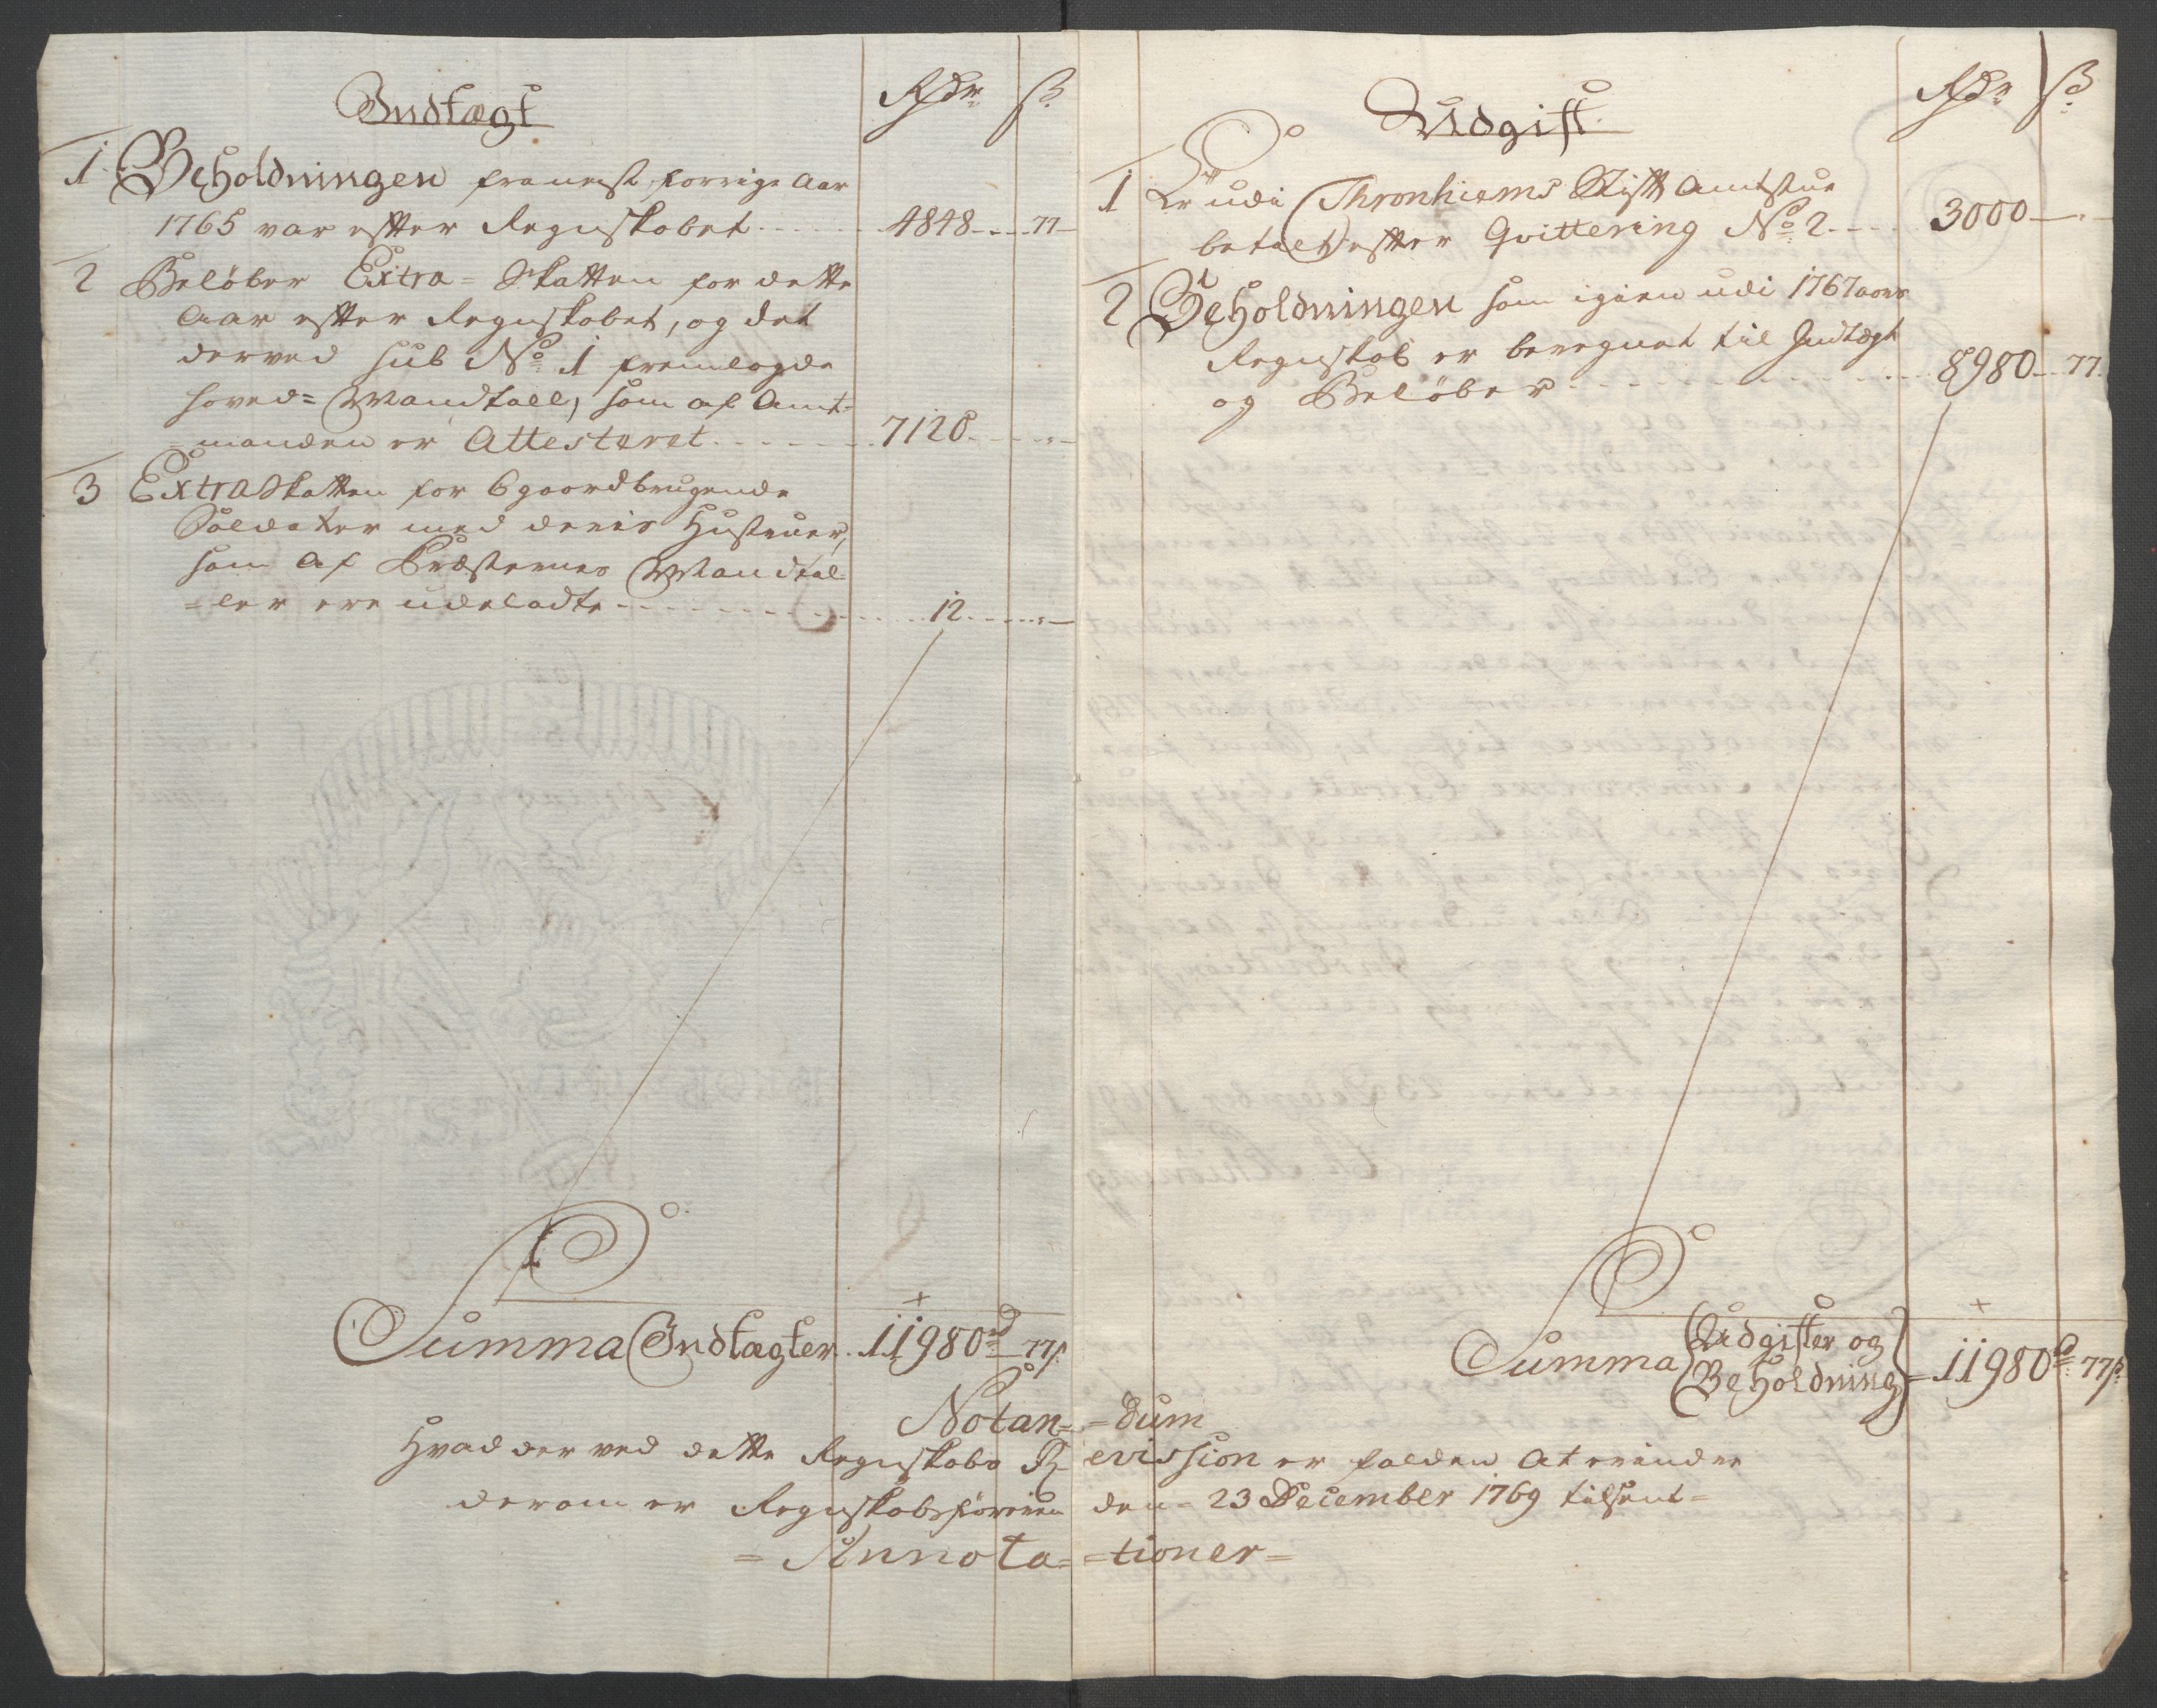 Indtægt
Rdr ß
1 Beholdningen fra nest forrige Aar
1765 var efter Regnskabet 4848 77
2 Beløber Extra-Skatten for dette
Aar efter Regnskabet, og det
derved sub No 1 fremlagde
hoved= Mandtall, som af Amt-
manden er Attesteret 7120
3 Extraskatten for 6 gaardbrugende
Soldater med deris Hustruer,
som af Præsternes Mandtal-
=ler ere udeladte 12
Summa Indtægter 11980rd 77ß
Udgift
Rdr ß
1 Er udi Thronhiems Stifts Amtstue
betalt efter Qvittering No 2 3000
2 Beholdningen som igien udi 1767 aars
Regnskab er beregnet til Indtægt
og Beløber 8980 77
Summa Udgifter og
Beholdning 11980rd 77ß
Notan= =dum
Hvad der ved dette Regnskabs R evission er falden at erindre
derom er Regnskabsføreren den 23 December 1769 tilsent=
= Annota= =tioner=